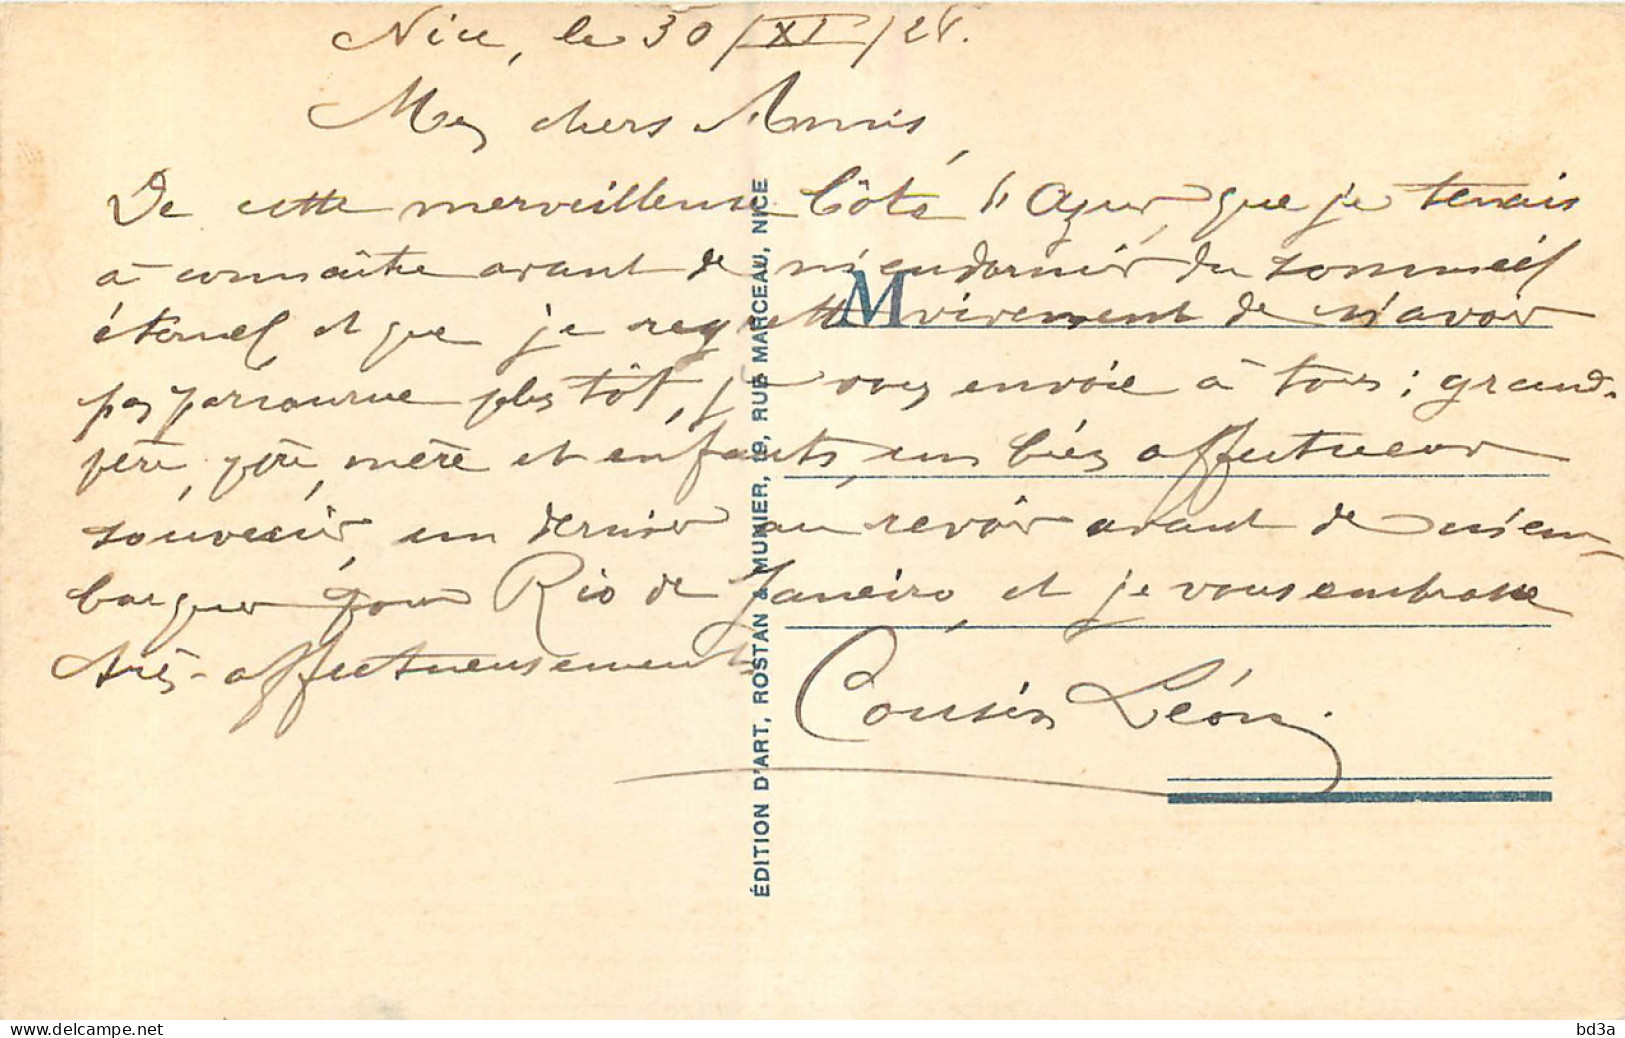 Nice, le 30/XI/28.
Mes chers Amis,
De cette merveilleuse Côte d'Azur, que je tenais
à connaître avant de m'endormir du sommeil
éternel et que je regrette vivement de n'avoir
pas parcourue plus tôt, je vous envoie à tous: grand-
père, père, mère et enfants, un bien affectueux
souvenir, un dernier au revoir avant de m'em-
barquer pour Rio de Janeiro, et je vous embrasse
très-affectueusement.
Cousin Léon.
M
ÉDITION D'ART, ROSTAN & MUNIER, 19, RUE MARCEAU, NICE
delcampe.net
bd3a